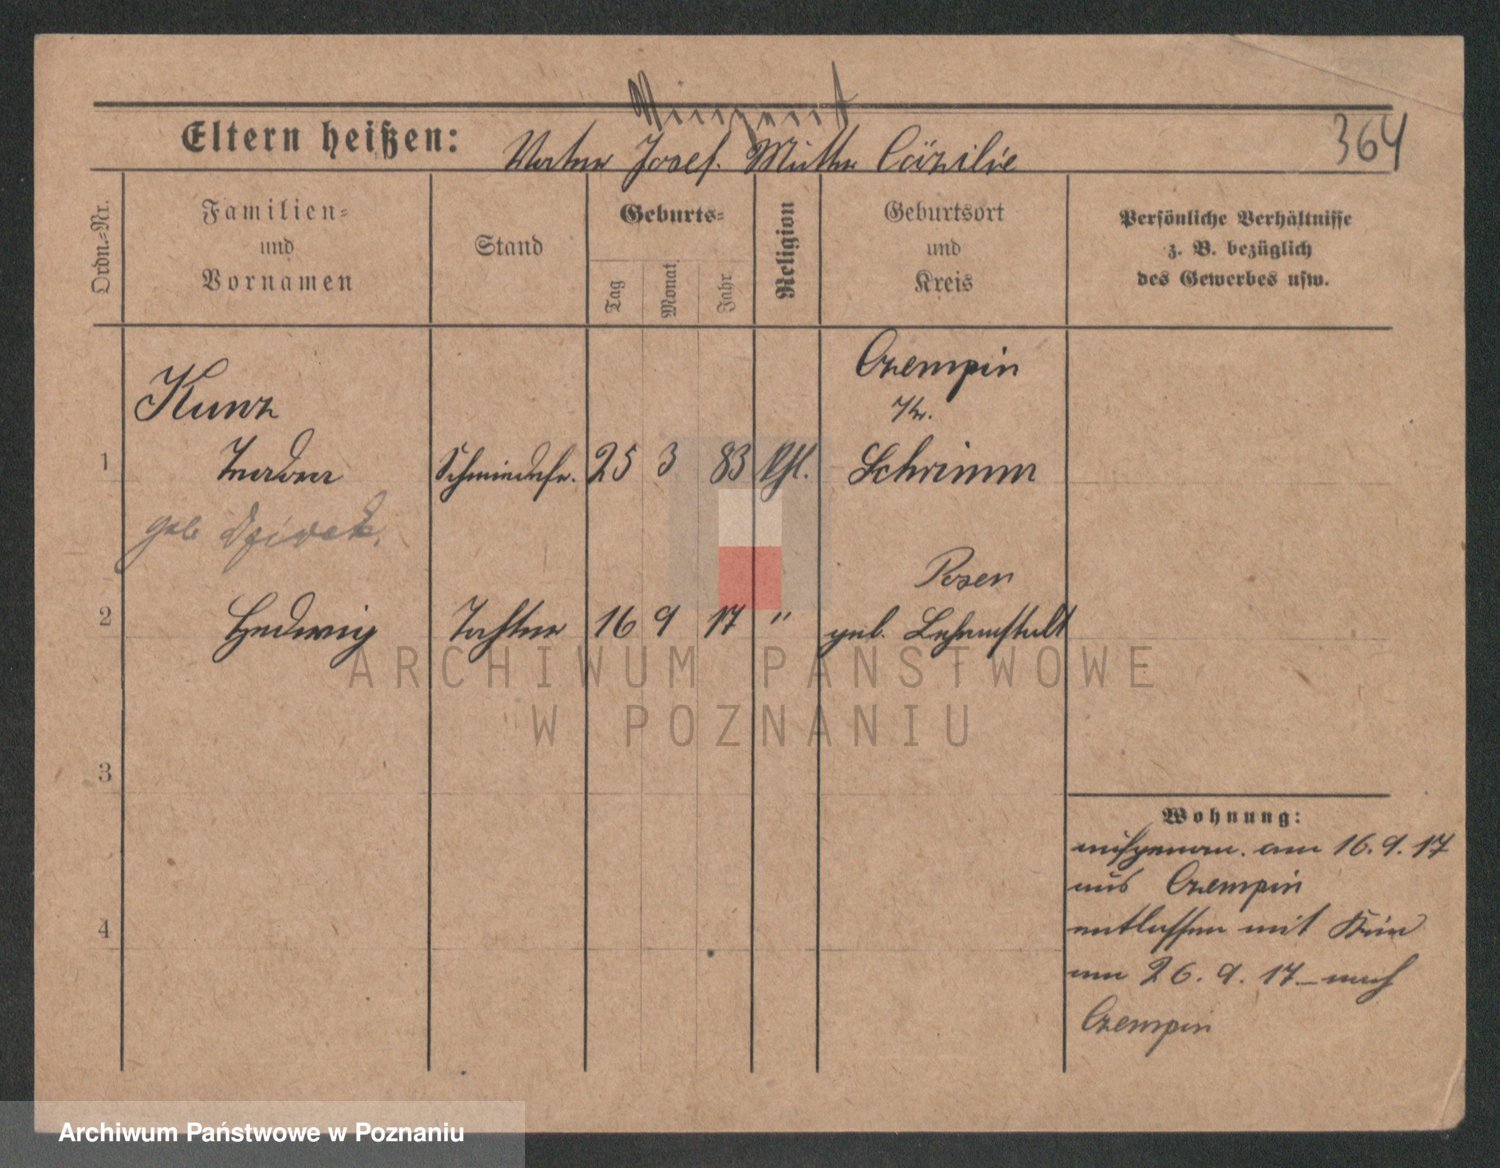 364
Eltern heißen: Vater Josef. Mutter Cäzilie
Ordn.-Nr.
Familien-
und
Vornamen
Stand
Geburts-
Tag
Monat
Jahr
Religion
Geburtsort
und
Kreis
Persönliche Verhältnisse
z. B. bezüglich
des Gewerbes usw.
Kunz
Czempin
Kr.
1 Schmiedefr. 25 3 83 kth. Schrimm
geb
Posen
2 Hedwig Tochter 16 9 17 " geb. Lehranstalt
3
4
Wohnung:
aufgenom. am 16.9.17
aus Czempin
entlassen mit Kind
am 26.9.17 nach
Czempin
ARCHIWUM PAŃSTWOWE
W POZNANIU
Archiwum Państwowe w Poznaniu